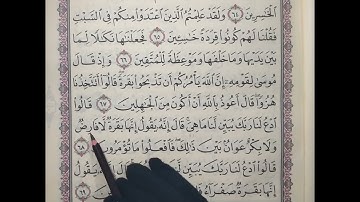 ٱلْخَٰسِرِينَ ٦٤ وَلَقَدْ عَلِمْتُمُ ٱلَّذِينَ ٱعْتَدَوْا۟ مِنكُمْ فِى ٱلسَّبْتِ
فَقُلْنَا لَهُمْ كُونُوا۟ قِرَدَةً خَٰسِـِٔينَ ٦٥ فَجَعَلْنَٰهَا نَكَٰلًا لِّمَا
بَيْنَ يَدَيْهَا وَمَا خَلْفَهَا وَمَوْعِظَةً لِّلْمُتَّقِينَ ٦٦ وَإِذْ قَالَ
مُوسَىٰ لِقَوْمِهِۦٓ إِنَّ ٱللَّهَ يَأْمُرُكُمْ أَن تَذْبَحُوا۟ بَقَرَةً قَالُوٓا۟ أَتَتَّخِذُنَا
هُزُوًا قَالَ أَعُوذُ بِٱللَّهِ أَنْ أَكُونَ مِنَ ٱلْجَٰهِلِينَ ٦٧ قَالُوا۟
ٱدْعُ لَنَا رَبَّكَ يُبَيِّن لَّنَا مَا هِىَ قَالَ إِنَّهُۥ يَقُولُ إِنَّهَا بَقَرَةٌ لَّا فَارِضٌ
وَلَا بِكْرٌ عَوَانٌۢ بَيْنَ ذَٰلِكَ فَٱفْعَلُوا۟ مَا تُؤْمَرُونَ ٦٨
قَالُوا۟ ٱدْعُ لَنَا رَبَّكَ يُبَيِّن لَّنَا يَقُولُ
إِنَّهَا بَقَرَةٌ صَفْرَآءُ ٦٩